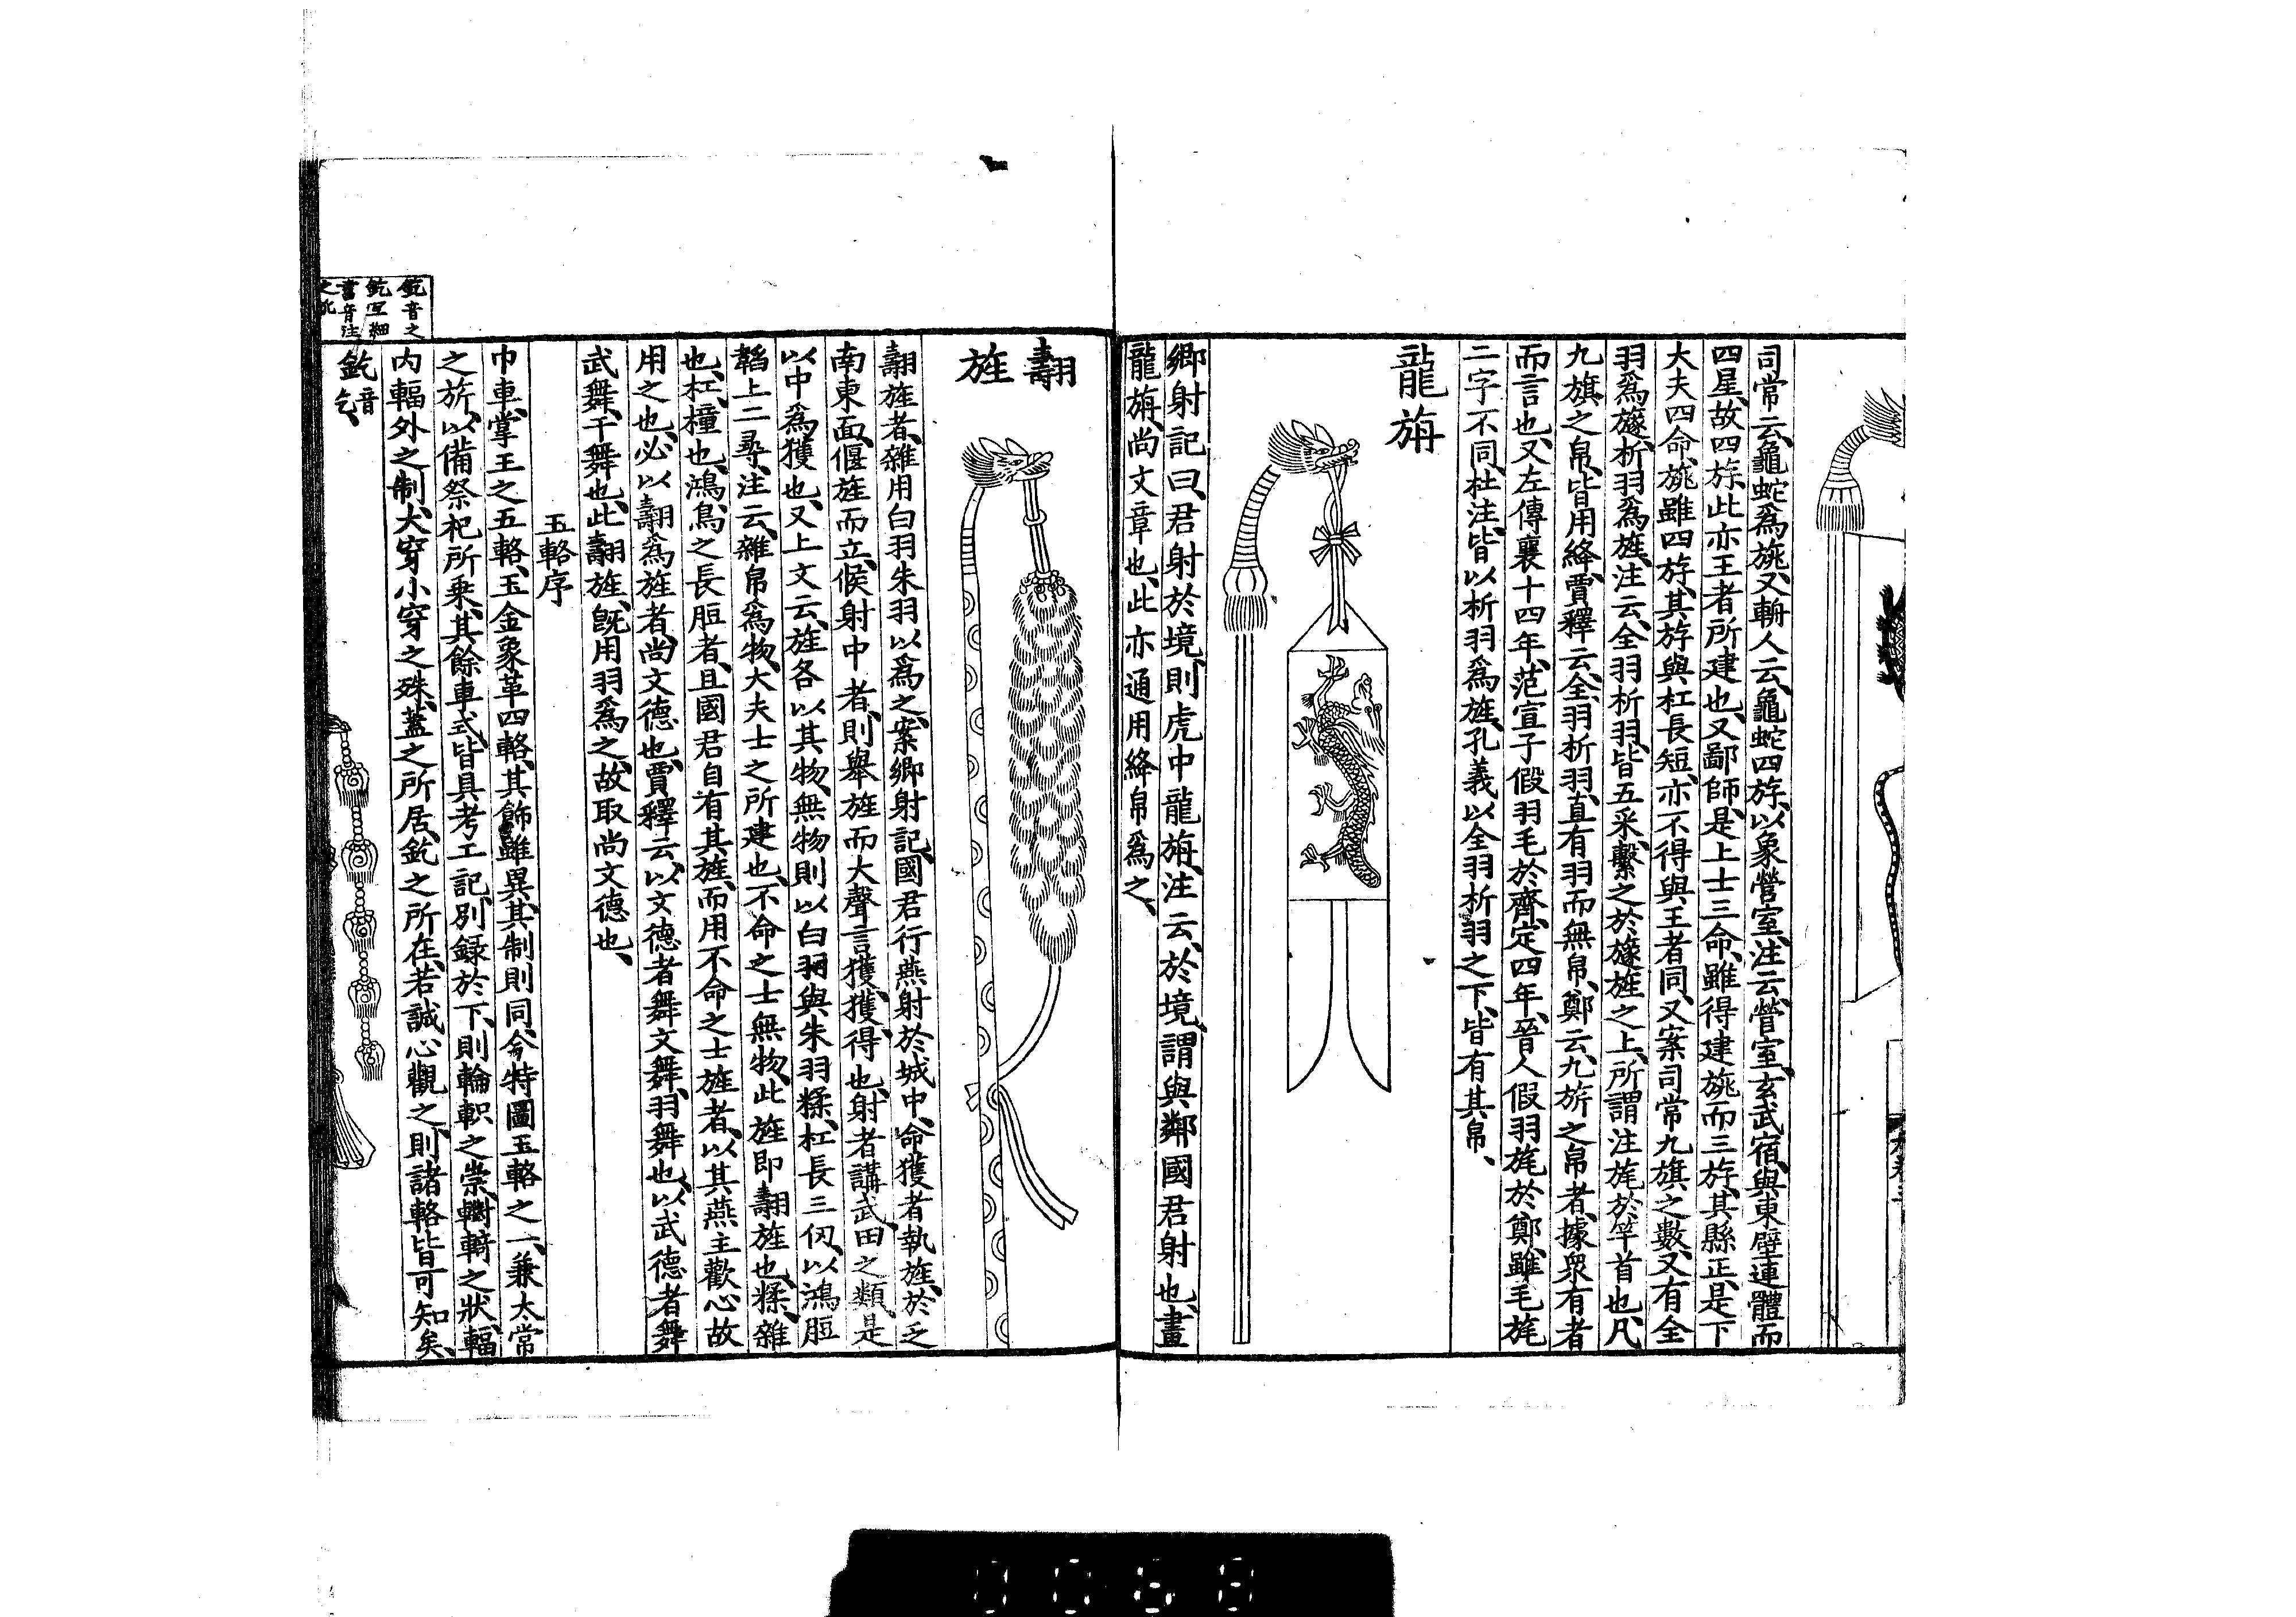 司常云、龜蛇爲旐、又輈人云、龜蛇四斿、以象營室、注云、營室、玄武宿、與東壁連體而
四星、故四斿、此亦王者所建也、又鄙師、是上士三命、雖得建旐而三斿、其縣正、是下
大夫四命、旐雖四斿、其斿與杠長短、亦不得與王者同、又案司常九旗之數、又有全
羽爲旞、析羽爲旌、注云、全羽析羽、皆五采、繫之於旞旌之上、所謂注旄於竿首也、凡
九旗之帛、皆用絳、賈釋云、全羽析羽、直有羽而無帛、鄭云、九旂之帛者、據衆有者
而言也、又左傳襄十四年、范宣子假羽毛於齊、定四年、晉人假羽旄於鄭、雖毛旄
二字不同、杜注、皆以析羽爲旌、孔義以全羽析羽之下、皆有其帛、
龍旃
鄉射記曰、君射於境、則虎中龍旃、注云、於境、謂與鄰國君射也、畫
龍旃、尚文章也、此亦通用絳帛爲之、
翿旌
翿旌者、雜用白羽朱羽以爲之、案鄉射記、國君行燕射於城中、命獲者執旌、於乏
南東面、偃旌而立、候射中者、則舉旌而大聲言獲、獲得也、射者講武田之類、是
以中爲獲也、又上文云、旌各以其物、無物則以白羽與朱羽糅、杠長三仞、以鴻脰
韜上二尋、注云、雜帛爲物、大夫士之所建也、不命之士無物、此旌即翿旌也、糅、雜
也、杠、橦也、鴻、鳥之長脰者、且國君自有其旌、而用不命之士旌者、以其燕主歡心故
用之也、必以翿爲旌者、尚文德也、賈釋云、以文德者舞文舞、羽舞也、以武德者舞
武舞、干舞也、此翿旌、既用羽爲之、故取尚文德也、
玉輅序
巾車、掌王之五輅、玉金象革四輅、其飾雖異、其制則同、今特圖玉輅之一、兼太常
之旂、以備祭祀所乘、其餘車式、皆具考工記、別録於下、則輪軹之崇、轛輢之狀、輻
内輻外之制、大穿小穿之殊、蓋之所居、釳之所在、若誠心觀之、則諸輅皆可知矣、
釳音乞、
釳音之
釳宜細
書音注